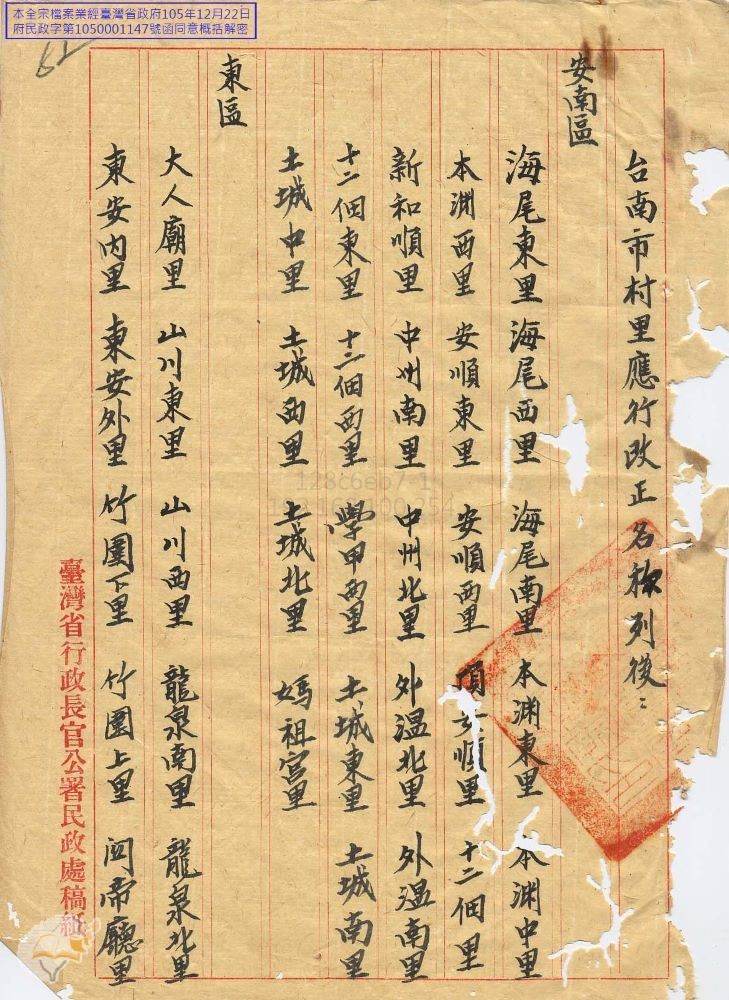 本全宗檔案業經臺灣省政府105年12月22日
府民政字第1050001147號函同意概括解密
62
台南市村里應行改正名稱列後：
安南區
海尾東里 海尾西里 海尾南里 本渊東里 本渊中里
本渊西里 安順東里 安順西里 頂安順里 十二佃里
新和順里 中州南里 中州北里 外溫北里 外溫南里
十二佃東里 十二佃西里 學甲西里 土城東里 土城南里
土城中里 土城西里 土城北里 媽祖宮里
東區
大人廟里 山川東里 山川西里 龍泉南里 龍泉北里
東安內里 東安外里 竹園下里 竹園上里 関帝廳里
臺灣省行政長官公署民政處稿紙